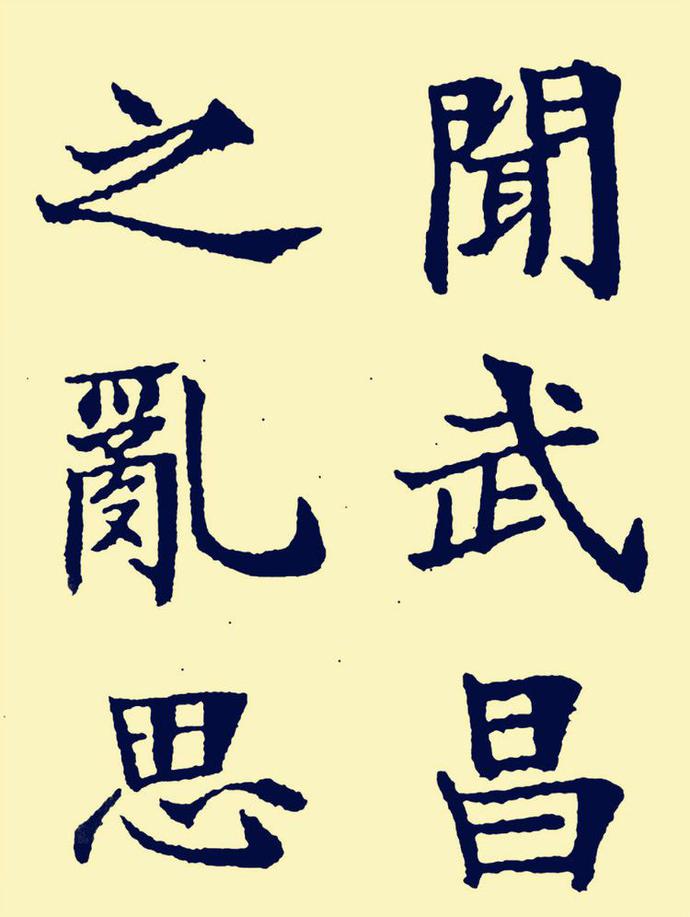 聞武昌
之亂思